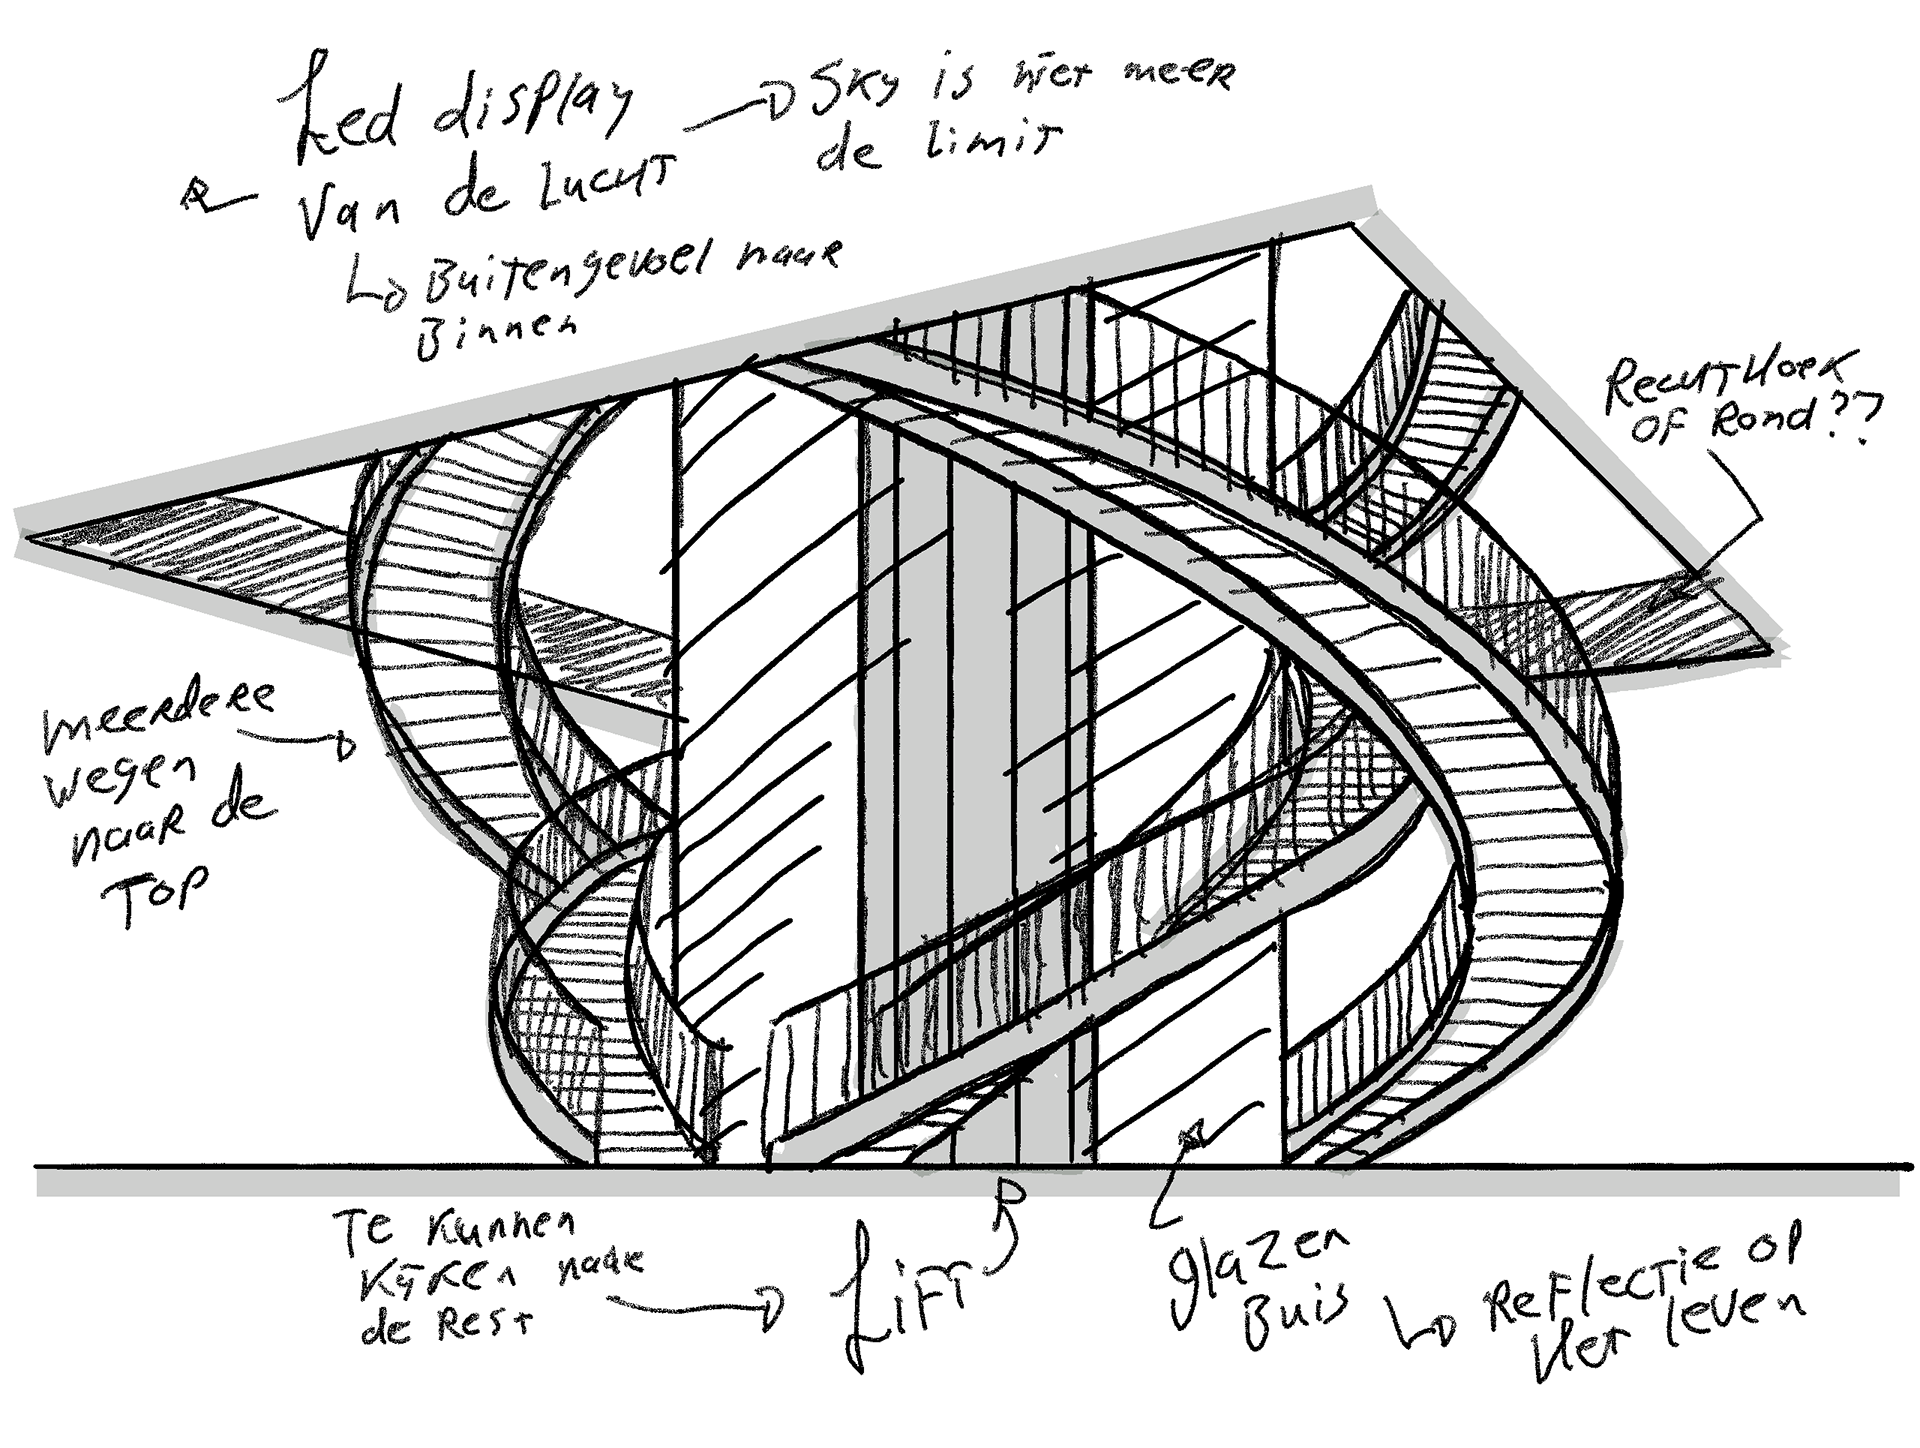 Led display
van de Lucht
Sky is niet meer
de limit
Buitengevoel naar
Binnen
Rechthoek
of Rond??
meerdere
wegen
naar de
Top
Te kunnen
kijken naar
de Rest
Lift
glazen
Buis
Reflectie op
Het leven